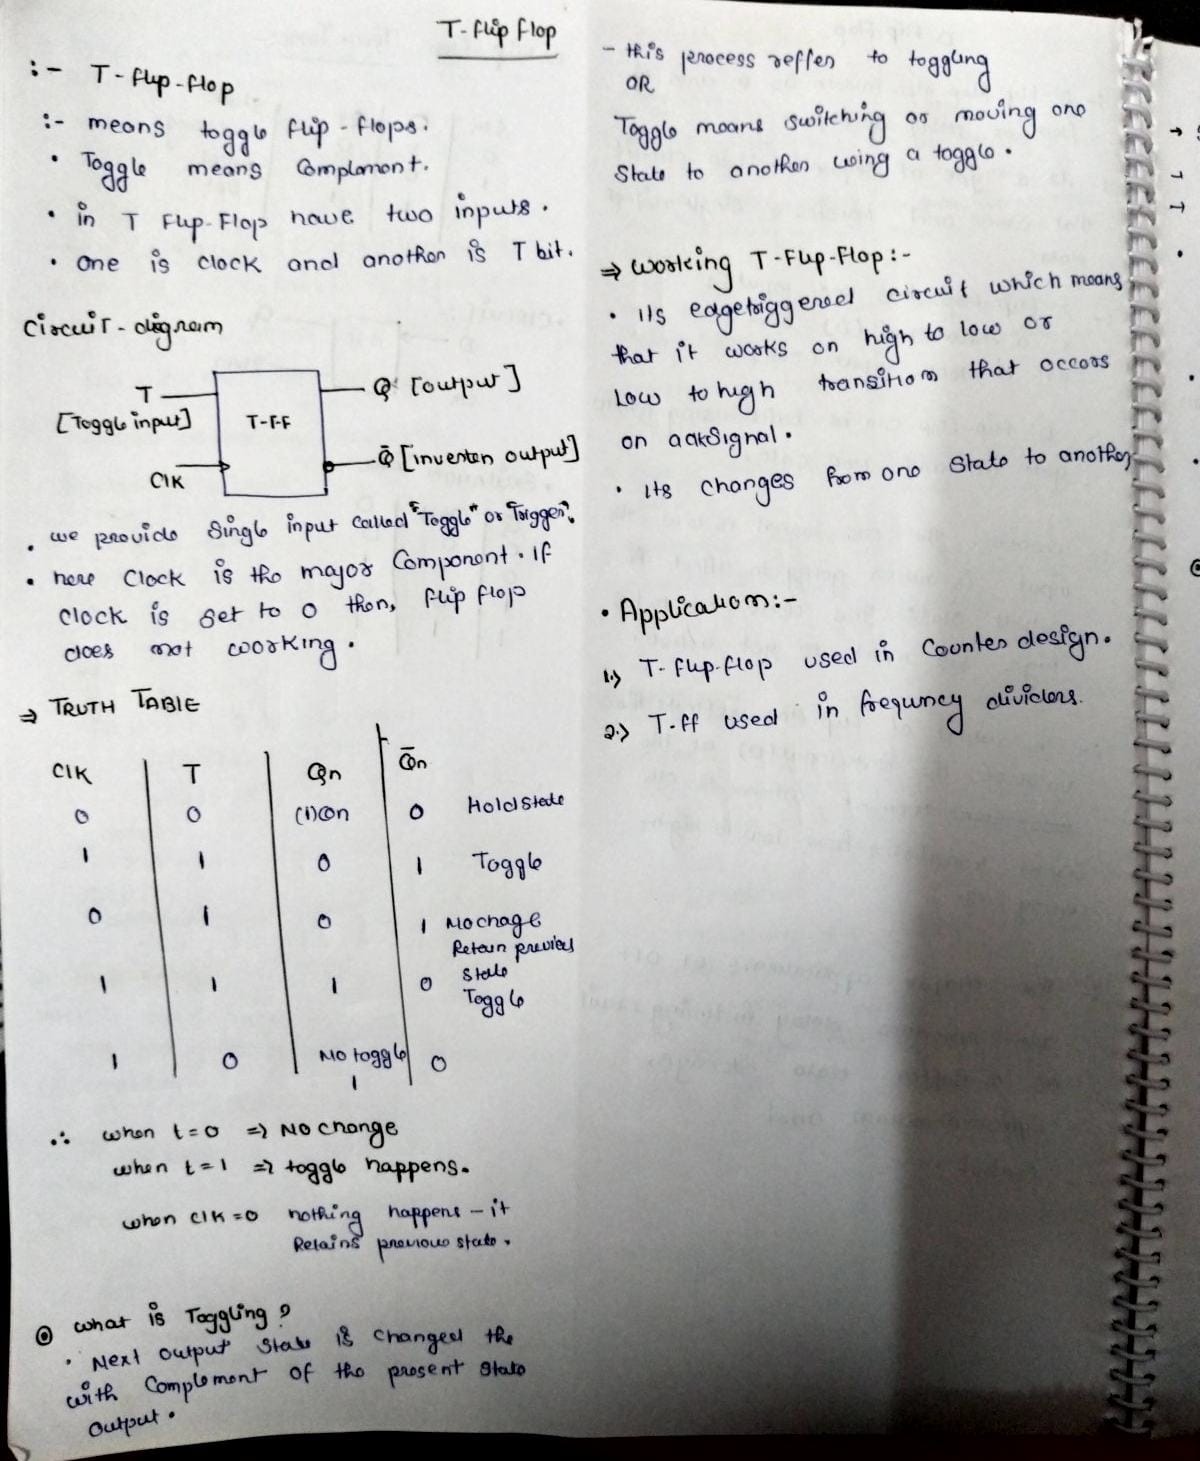 T-flip flop
:- T-flip-flop
:- means toggle flip-flops.
• Toggle means Complement.
• in T Flip-Flop have two inputs.
• one is clock and another is T bit.
Circuit-digram
T
[Toggle input]
Clk
T-FF
Q [output]
Q̄ [inverten output]
• we provide single input called "Toggle" or "Trigger".
• here Clock is the major Component. If
clock is set to 0 then, flip flop
does not working.
⇒ TRUTH TABLE
Clk | T | Qn | Q̄n
0 0 (1)Qn 0 Hold state
1 1 0 1 Toggle
0 1 0 1 No chage
Retain previes
state
1 1 1 0 Toggle
1 0 No toggle 0
1
∴ when t=0 => No change
when t=1 => toggle happens.
when clk=0 nothing happens - it
Retains previous state.
⊙ what is Toggling?
• Next output state is changed the
with Complement of the present state
output.
- this process reffer to toggling
OR
Toggle means switching or moving one
state to another using a toggle.
⇒ working T-Flip-Flop:-
• its edgetriggered circuit which means
that it works on high to low or
Low to high transition that occors
on a clk signal.
• its changes from one state to another
• Application:-
1.> T-flip-flop used in Counter design.
2.> T-ff used in frequncy dividers.